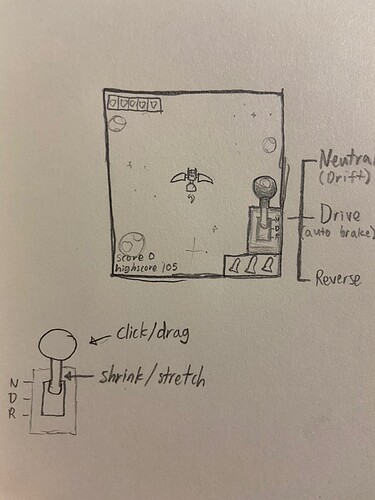 Neutral
(Drift)
N
D
R
Drive
(auto brake)
Reverse
score 0
highscore 105
click/drag
shrink/stretch
N
D
R